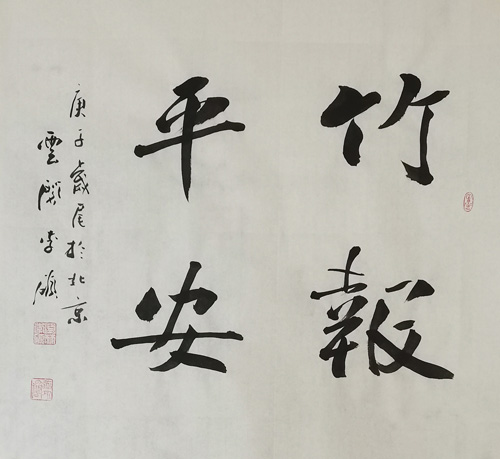 竹報
平安
庚子歲尾於北京
雲閑李